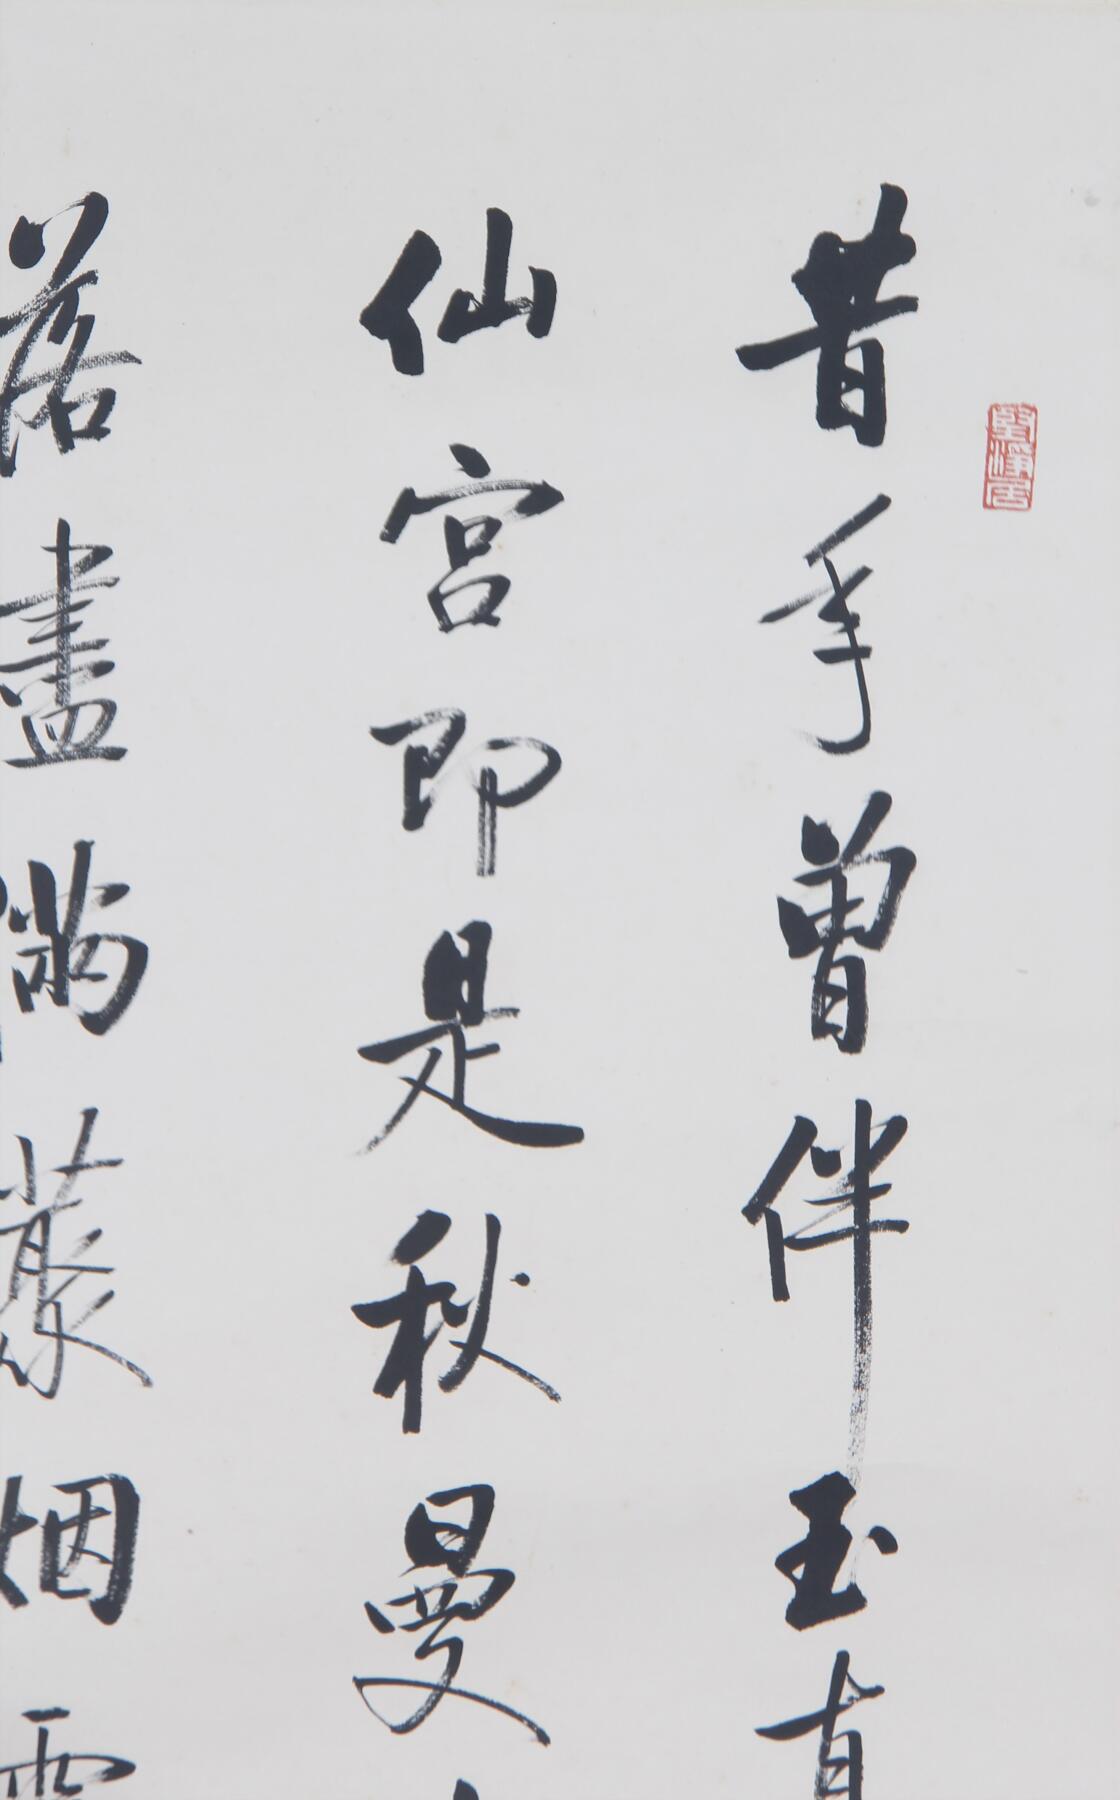 昔年曾伴玉真
仙宮即是秋曼
落盡滿叢烟